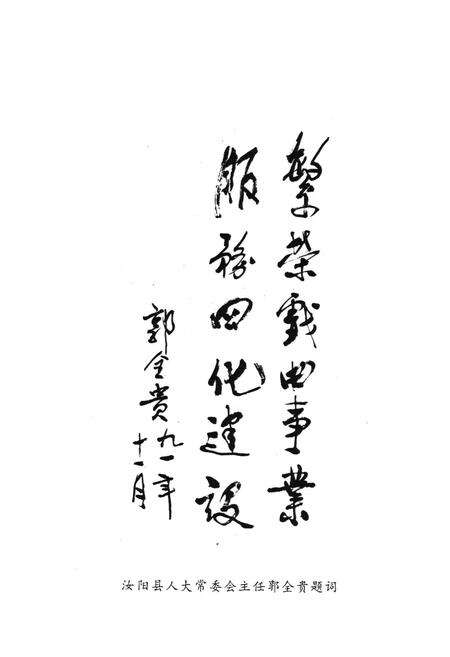 繁荣戏曲事业
服务四化建设
郭全贵 九一年
十一月
汝阳县人大常委会主任郭全贵题词